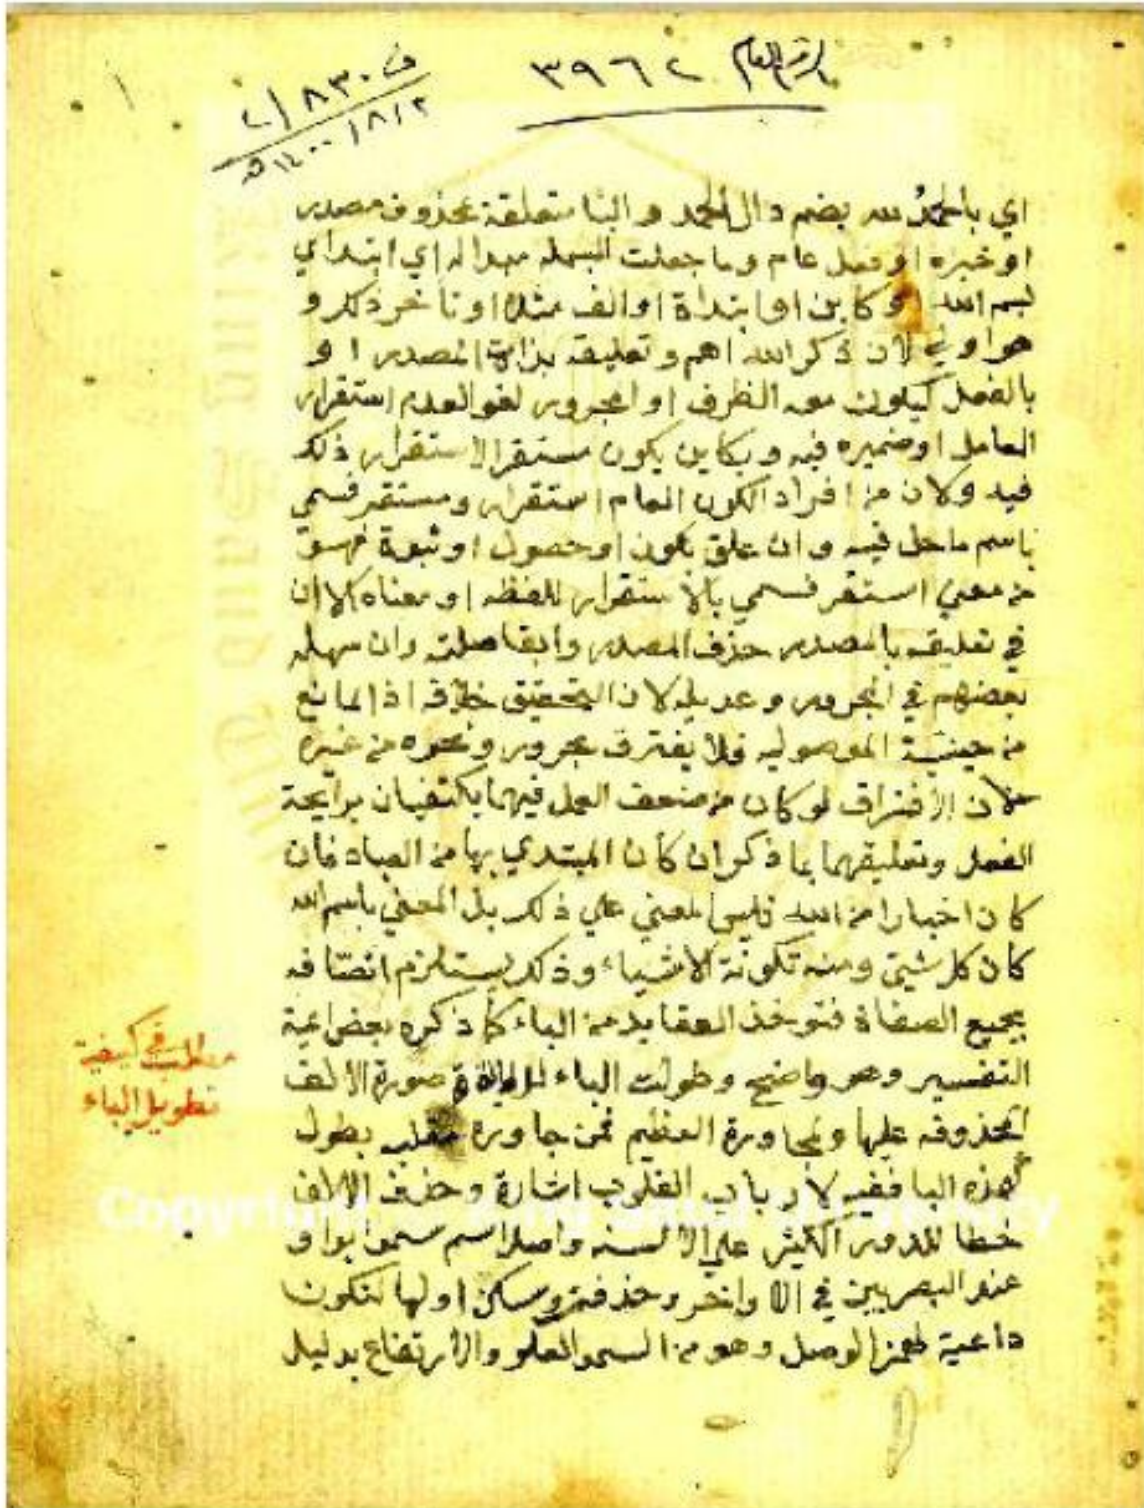 الرقم العام ٣٩٦٢
ف ٨٣٠ / ٢
١٤٠٠/٨/٢ هـ
اي بالحمدُ لله بضم دال الحمد والبا متعلقة بمحذوف مصدر
او خبره او فعل عام وما جعلت البسملة مبدا له اي ابتداي
بسم الله او كاين او ابتداة او الف مثلا او تاخر ذكر و
هو اولي لان ذكر الله اهم وتعليقه بذاة المصدر او
بالفعل كيكون معه الظرف او المجرور لغو العدم استقرار
العامل او ضميره فيه وبكاين يكون مستقر الاستقرار ذلك
فيه وكان من افراد الكون العام استقرار ومستقر فسمي
باسم ما حل فيه وان علق بكون او حصول او ثبوة فهو
من معني استقر فسمي بالاستقرار للفظه او معناه الا ان
في تعليقه بالمصدر حذف المصدر وابقا صلته وان سهله
بعضهم في المجرور وعديله لان التحقيق خلافه اذ المانع
من حيثية الموصوليه فلا يفترق مجرور ونحوه من غيره
لان الافتراق لو كان من ضعف العمل فيهما يكتفيان برايحة
الفعل وتعليقهما بما ذكر ان كان المبتدي بها من العباد فان
كان اخبارا من الله فليس المعني علي ذلك بل المعني باسم الله
كان كل شيئ ومنه تكونة الاشياء وذلك يستلزم اتصافه
بجميع الصفاة فتوخذ العقايد من الباء كما ذكره بعض ايمة
التفسير وهو واضح وطولت الباء صورة الالف
المحذوفه عليها ولمجاورة العظيم فمن جاورة بطول
هذه البا ففيه لارباب القلوب اشارة وحذف الالف
خطا للدور الكثير علي الالسنه واصل اسم سمو ابواو
عند البصريين في الاواخر وحذفت وسكن اولها لتكون
داعية لهمز الوصل وهو من السمو العلو والارتفاع بدليل
مطلب في كيفية
تطويل الباء
Copyright © King Saud University